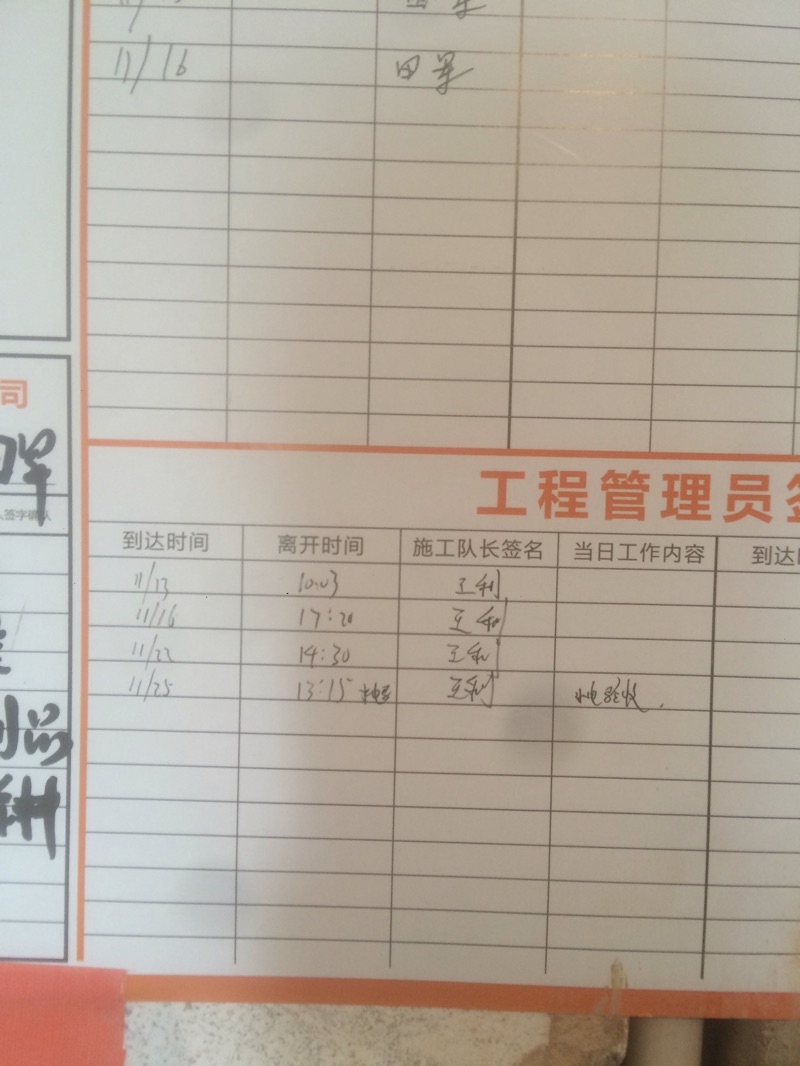 11/16 田军
司
工程管理员签
到达时间 离开时间 施工队长签名 当日工作内容 到达时
11/13 10:03 王利
11/16 17:20 王利
11/22 14:30 王利
11/25 13:15 水电 王利 水电验收.